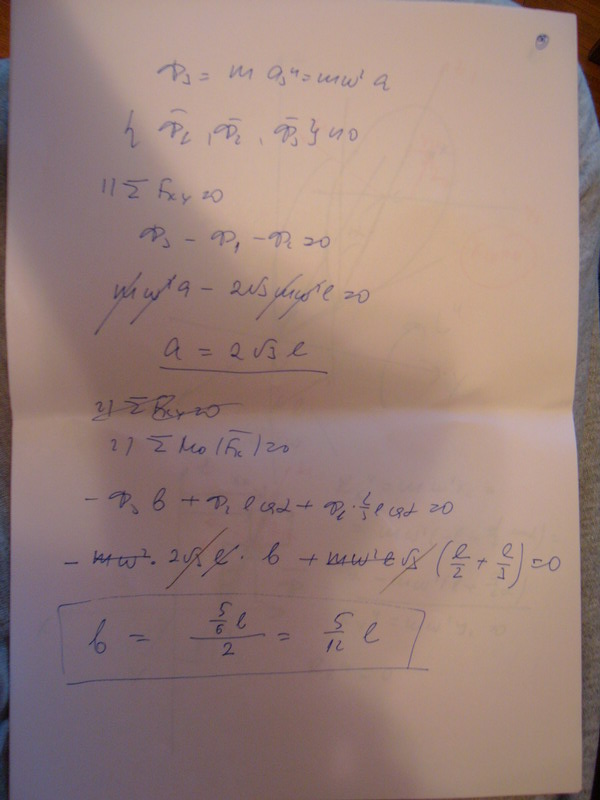 Φ₃ = m a₃ⁿ = mω² a
{ Φ̄₁, Φ̄₂, Φ̄₃ } ∾ 0
1) Σ Fₖᵧ = 0
Φ₃ - Φ₁ - Φ₂ = 0
mω² a - 2√3 mω² l = 0
a = 2√3 l
2) Σ Fₖᵧ = 0
2) Σ M₀ (F̄ₖ) = 0
- Φ₃ b + Φ₁ l cos α + Φ₂ · 2/3 l cos α = 0
- mω² · 2√3 l · b + mω² l √3 (l/2 + l/3) = 0
b = (5/6 l)/2 = 5/12 l